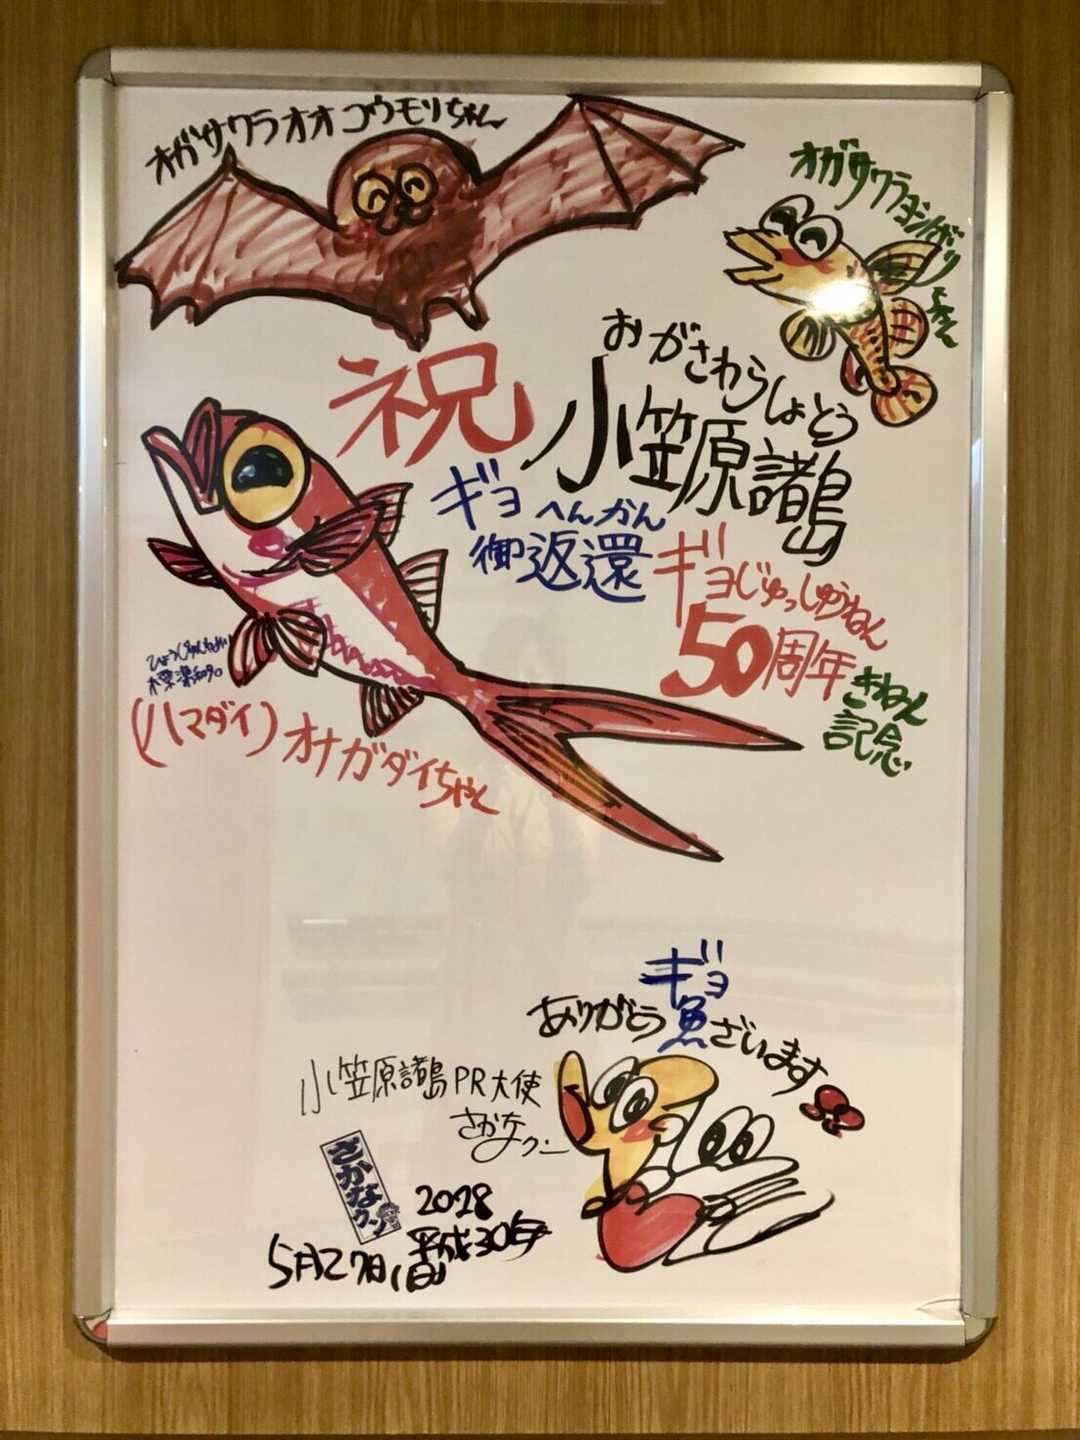 オガサワラオオコウモリちゃん
オガサワラヨシノボリちゃん
祝
おがさわらしょとう
小笠原諸島
ギョ へんかん
御返還
ギョじゅっしゅうねん
50周年
きねん
記念
ひょうじゅんわめい
標準和名
(ハマダイ) オナガダイちゃん
ギョ
ありがとう魚ざいます
小笠原諸島PR大使
さかなクン
さかなクン
2018
平成30年
5月27日(日)